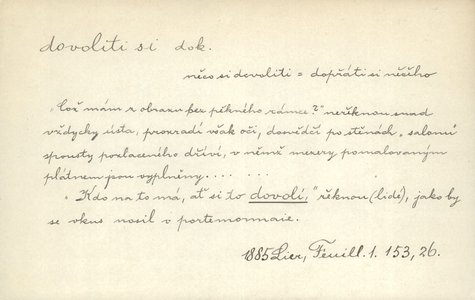 dovoliti si dok.
něco si dovoliti = dopřáti si něčeho
„Což mám z obrazu bez pěkného rámce?" neřeknou snad
vždycky ústa, prozradí však oči, dosvědčí po stěnách „salonu
spousty pozlaceného dříví, v němž mezery pomalovaným
plátnem jsou vyplněny. . . . .
„Kdo na to má, ať si to dovolí," řeknou (lidé), jako by
se vkus nosil v portemonnaie.
1885 Lier, Feuill. 1. 153, 26.